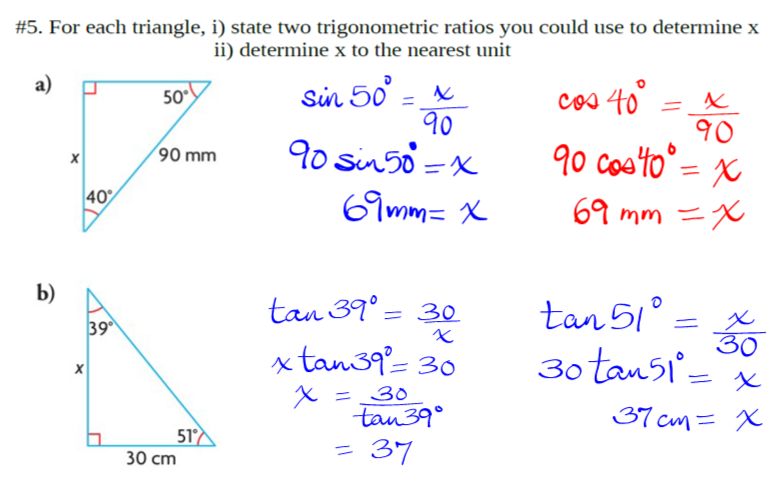 #5. For each triangle, i) state two trigonometric ratios you could use to determine x
ii) determine x to the nearest unit
a)
50°
x
90 mm
40°
sin 50° = x/90
90 sin 50° = x
69mm = x
cos 40° = x/90
90 cos 40° = x
69 mm = x
b)
39°
x
51°
30 cm
tan 39° = 30/x
x tan 39° = 30
x = 30/tan 39°
= 37
tan 51° = x/30
30 tan 51° = x
37 cm = x